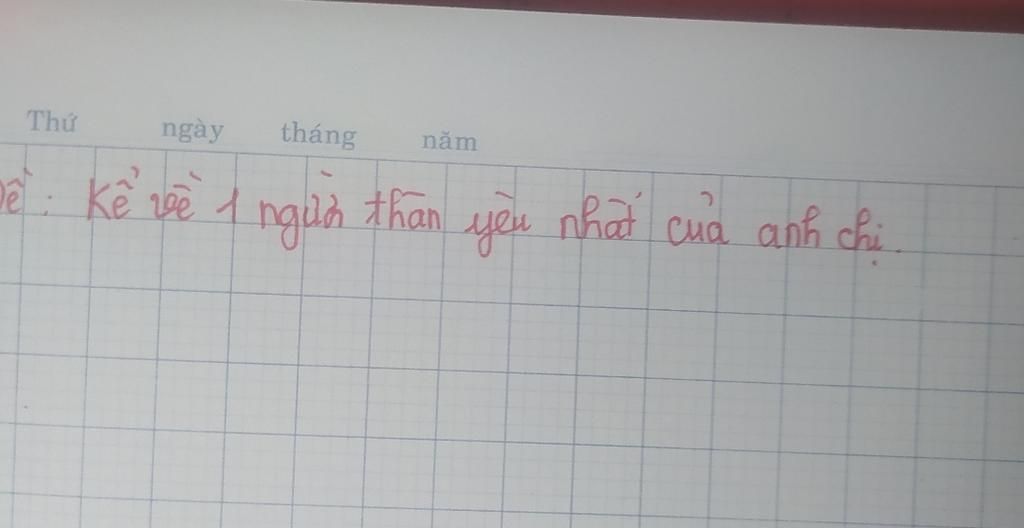 Thứ ngày tháng năm
Đề: Kể về 1 người thân yêu nhất của anh chị.